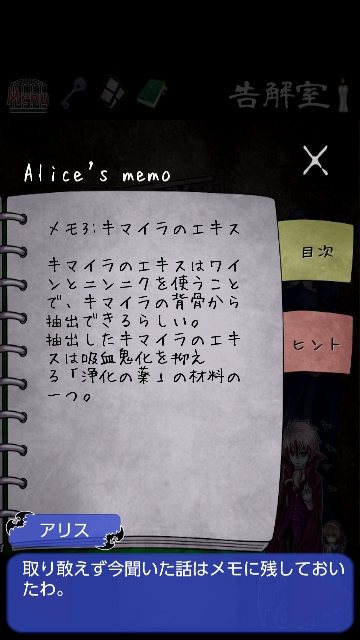 Menu
告解室
Alice's memo
メモ3:キマイラのエキス
目次
キマイラのエキスはワイ
ンとニンニクを使うこと
で、キマイラの背骨から
抽出できるらしい。
抽出したキマイラのエキ
スは吸血鬼化を抑え
る「浄化の薬」の材料の
一つ。
ヒント
アリス
取り敢えず今聞いた話はメモに残しておい
たわ。